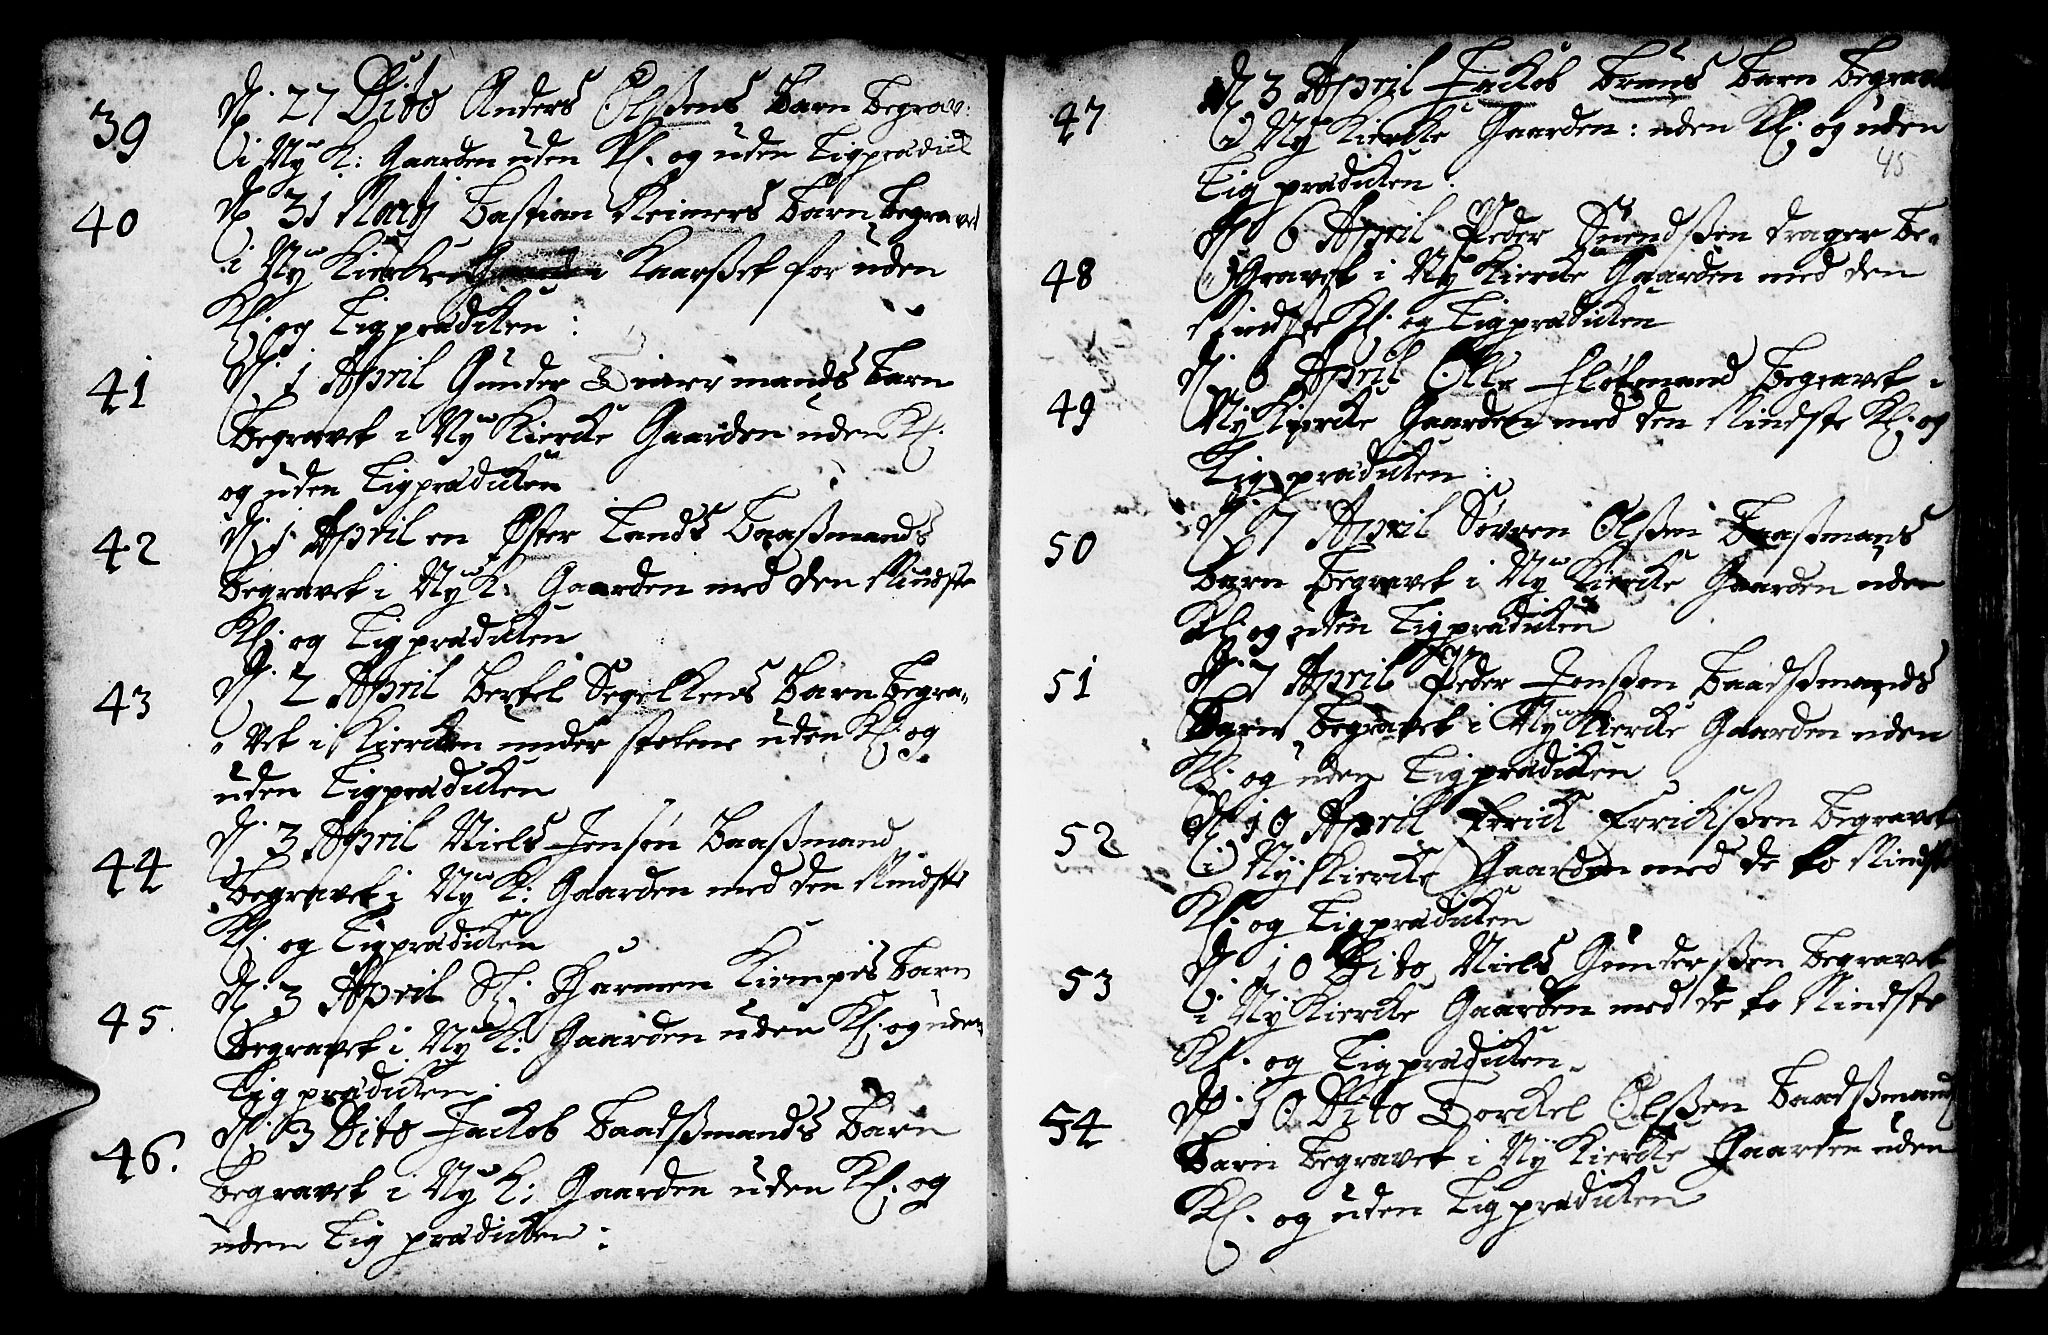 39 d. 27 Dito Anders Olssens Barn begrav:
i Ny K: Gaarden uden Kl. og uden Ligpredick
40 d. 31 Marty Bastian Reimers Barn begravet
i Ny Kiercke i Kaarsset for uden
Kl. og Ligprediken:
41 d. 1 April Gunder Timermands Barn
begravet i Ny Kiercke Gaarden uden Kl.
og uden Ligprediken
42 d. 1 April en Øster Lands Baassmands
begravet i Ny K: Gaarden med den Mindste
Kl. og Ligprediken
43 d. 2 April Bertel Segelkens Barn begra-
vet i Kiercken under stolene uden Kl. og
uden Ligprediken
44 d. 3 April Niels Jensen Baassmand
begravet i Ny K: Gaarden med den Mindste
Kl. og Ligprediken
45. d. 3 April Sl. Harmen Kiempis Barn
begravet i Ny K: Gaarden uden Kl. og uden
Ligprediken.
46. d. 3 Dito Jackob Baadssmands Barn
begravet i Ny K: Gaarden uden Kl. og
uden Lig prediken:
47 d. 3 April Jackob Bruns Barn begravet
i Ny Kiercke Gaarden: uden Kl. og uden
45
Lig prediken:
48 d. 6 April Peder Suendssen drager be-
gravet i Ny Kiercke Gaarden med den
Mindste Kl. og Ligprediken
49 d. 6 April Olle Fløtmand begravet i
Ny Kiercke Gaarden med den Mindste Kl. og
Ligprediken:
50 d. 7 April Søvren Olssen Baassmans
Barn begravet i Ny Kiercke Gaarden uden
Kl. og uden Ligprediken
51 d. 7 April Peder Jenssen Baadssmands
Barn begravet i Ny Kiercke Gaarden uden
Kl. og uden Ligprediken
52 d. 10 April Errick Errickssen begravet
i Ny Kiercke Gaarden med de to Mindste
Kl. og Ligprediken
53 d. 10 Dito Niels Gunderssen begravet
i Ny Kiercke Gaarden med de to Mindste
Kl. og Ligprediken.
54 d. 10 Dito Torckel Olssen Baadssmands
Barn begravet i Ny Kiercke Gaarden uden
Kl. og uden Ligprediken